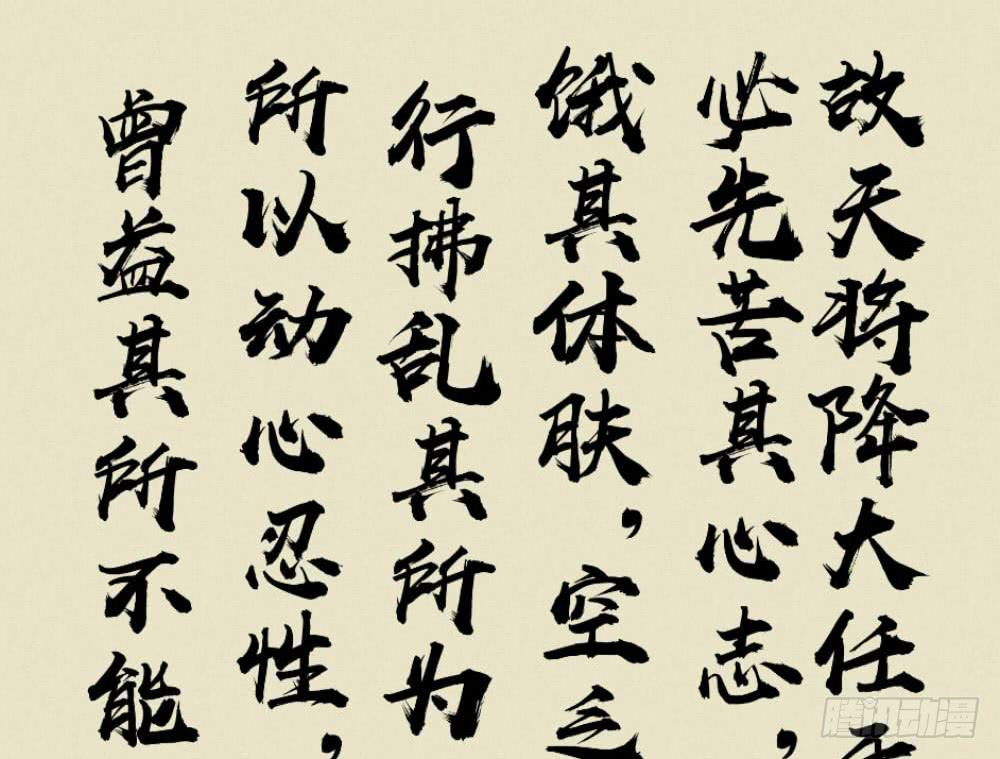 故天将降大任
必先苦其心志，
饿其体肤，空乏
行拂乱其所为
所以动心忍性，
曾益其所不能
腾讯动漫